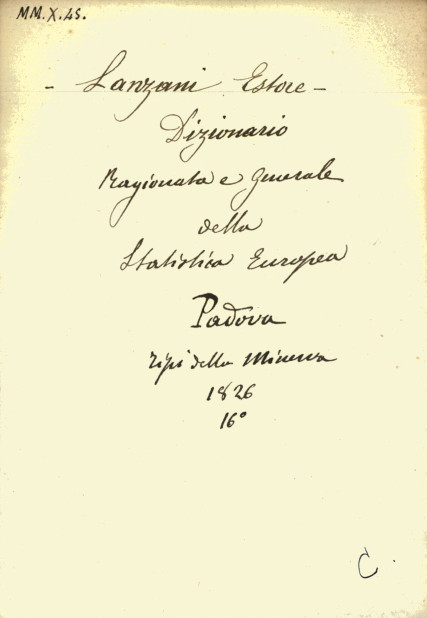 MM.X.45.
- Lanzani Estore -
Dizionario
Ragionata e Generale
della
Statistica Europea
Padova
tipi della Minerva
1826
16°
C.